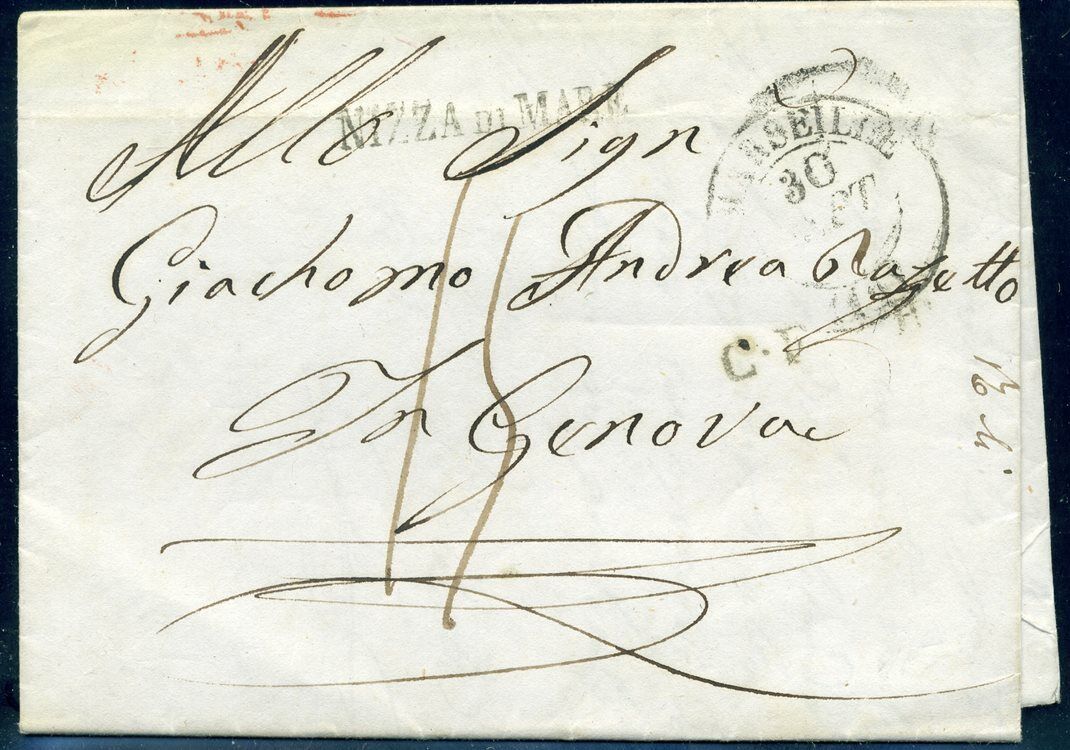 Allo Sign
NIZZA DI MARE
MARSEILLE
30
SEPT
Giachomo Andrea Razetto
C.F.
In Genova
15